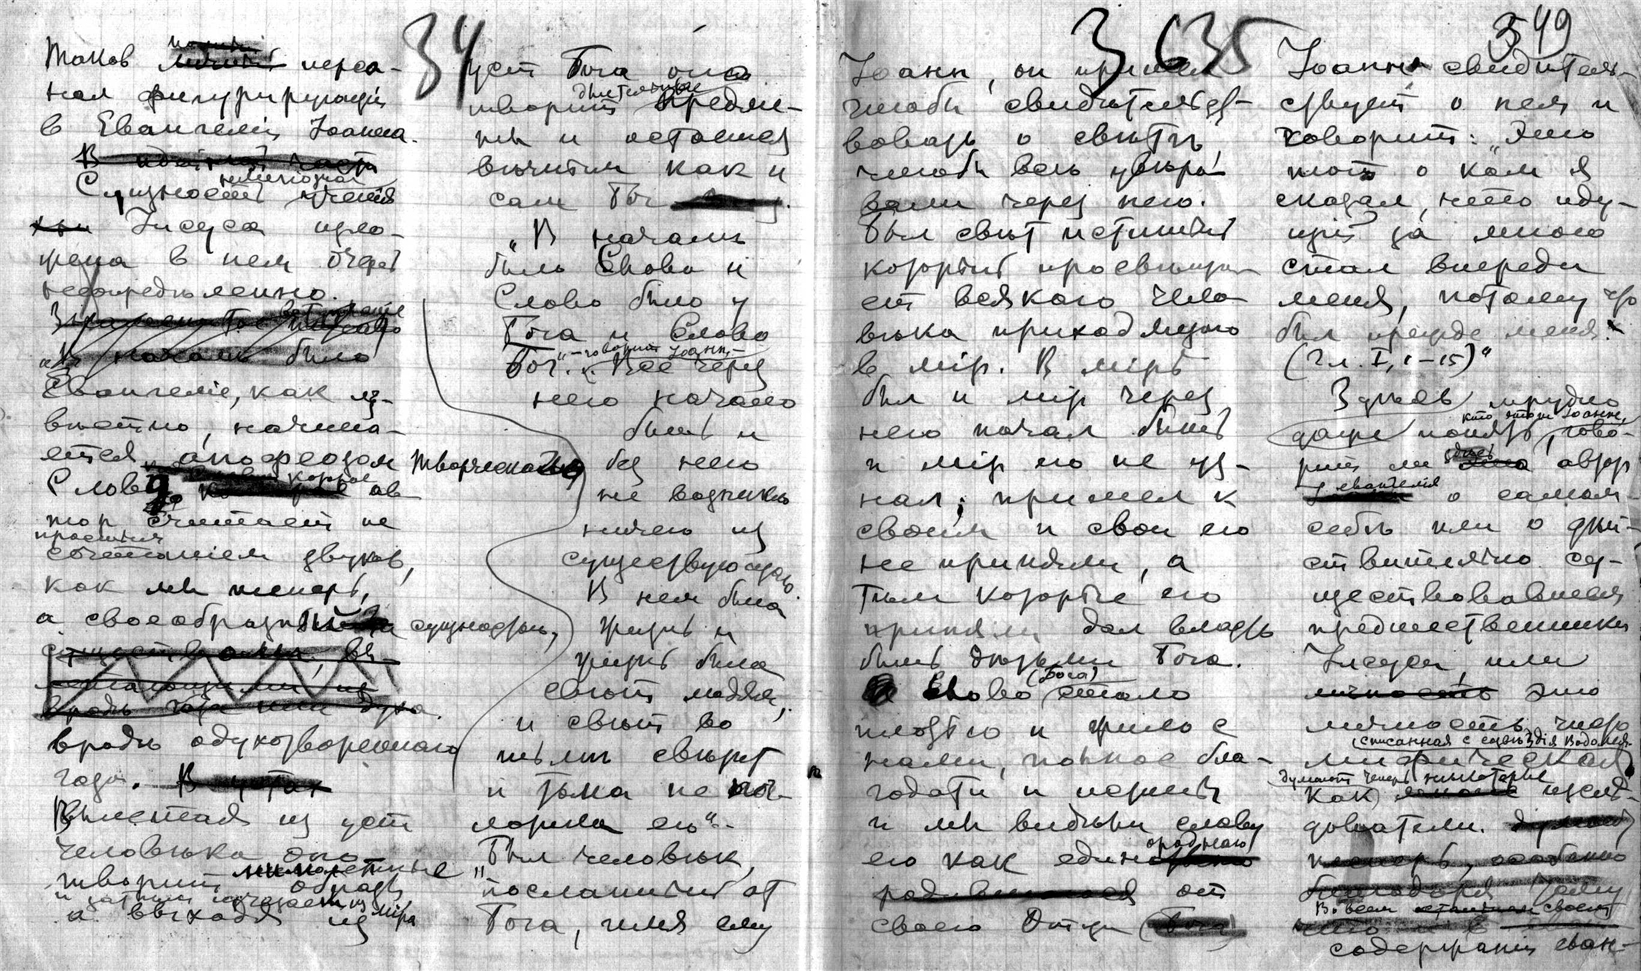 34
Таков
нал фигурирующiй
в Евангелiи Iоанна.
Сущность ученiя
Iисуса изло-
жена в нем очень
неопредѣленно.
Евангелiе, как из-
вѣстно, начина-
ется апофеозом
Слова, которое ав-
тор считает не
простым
сочетанiем звуков,
как мы теперь,
а своеобразным
вродѣ одухотвореннаго
газа.
Вылетая из уст
человѣка оно
творит мимолетные образы
и затѣм исчезает из мiра
а выходя из
уст Бога оно
творит дѣйствительные предме-
ты и остается
вѣчным как и
сам Бог.
„В началѣ
было Слово и
Слово было у
Бога и Слово
Бог.“ – говорит Iоанн. – „Все через
него начало
быть и
творческая
без него
не возникло
ничего из
существующаго.
В нем была
сущность,
жизнь и
жизнь была
свѣт людям,
и свѣт во
тьмѣ свѣтит
и тьма не по-
морила его“.
„Был человѣк,
посланный от
Бога, имя ему
3 635
Iоанн, он пришел
чтобы свидѣтельст-
вовать о свѣтѣ,
чтобы всѣ увѣро-
вали через него.
Был свѣт истинный
который просвѣща-
ет всякого чело-
вѣка приходящаго
в мiр. В мiрѣ
был и мiр через
него начал быть
и мiр его не уз-
нал; пришел к
своим и свои его
не приняли, а
тѣм которые его
приняли дал власть
быть дѣтьми Бога.
Слово (Бога) стало
плотью и жило с
нами, полное бла-
годати и истины
и мы видѣли славу
его как единороднаго
от
своего Отца
3 49
Iоанн свидѣтель-
ствует о нем и
говорит: „Это
тот о ком я
сказал, что иду-
щiй за мною
стал впереди
меня, потому что
был прежде меня.
(Гл. I, 1–15)“
Здѣсь трудно
даже понять, кто этот Iоанн, гово-
рит ли здѣсь автор
евангелiя о самом
себѣ или о дѣй-
ствительно су-
ществовавшем
предшественникѣ
Iисуса, или
это
личность чисто
мифическая (списанная с созвѣздiя Водолея
как думают теперь нѣкоторые изслѣ-
дователи.
Во всем своем
содержанiи еван-